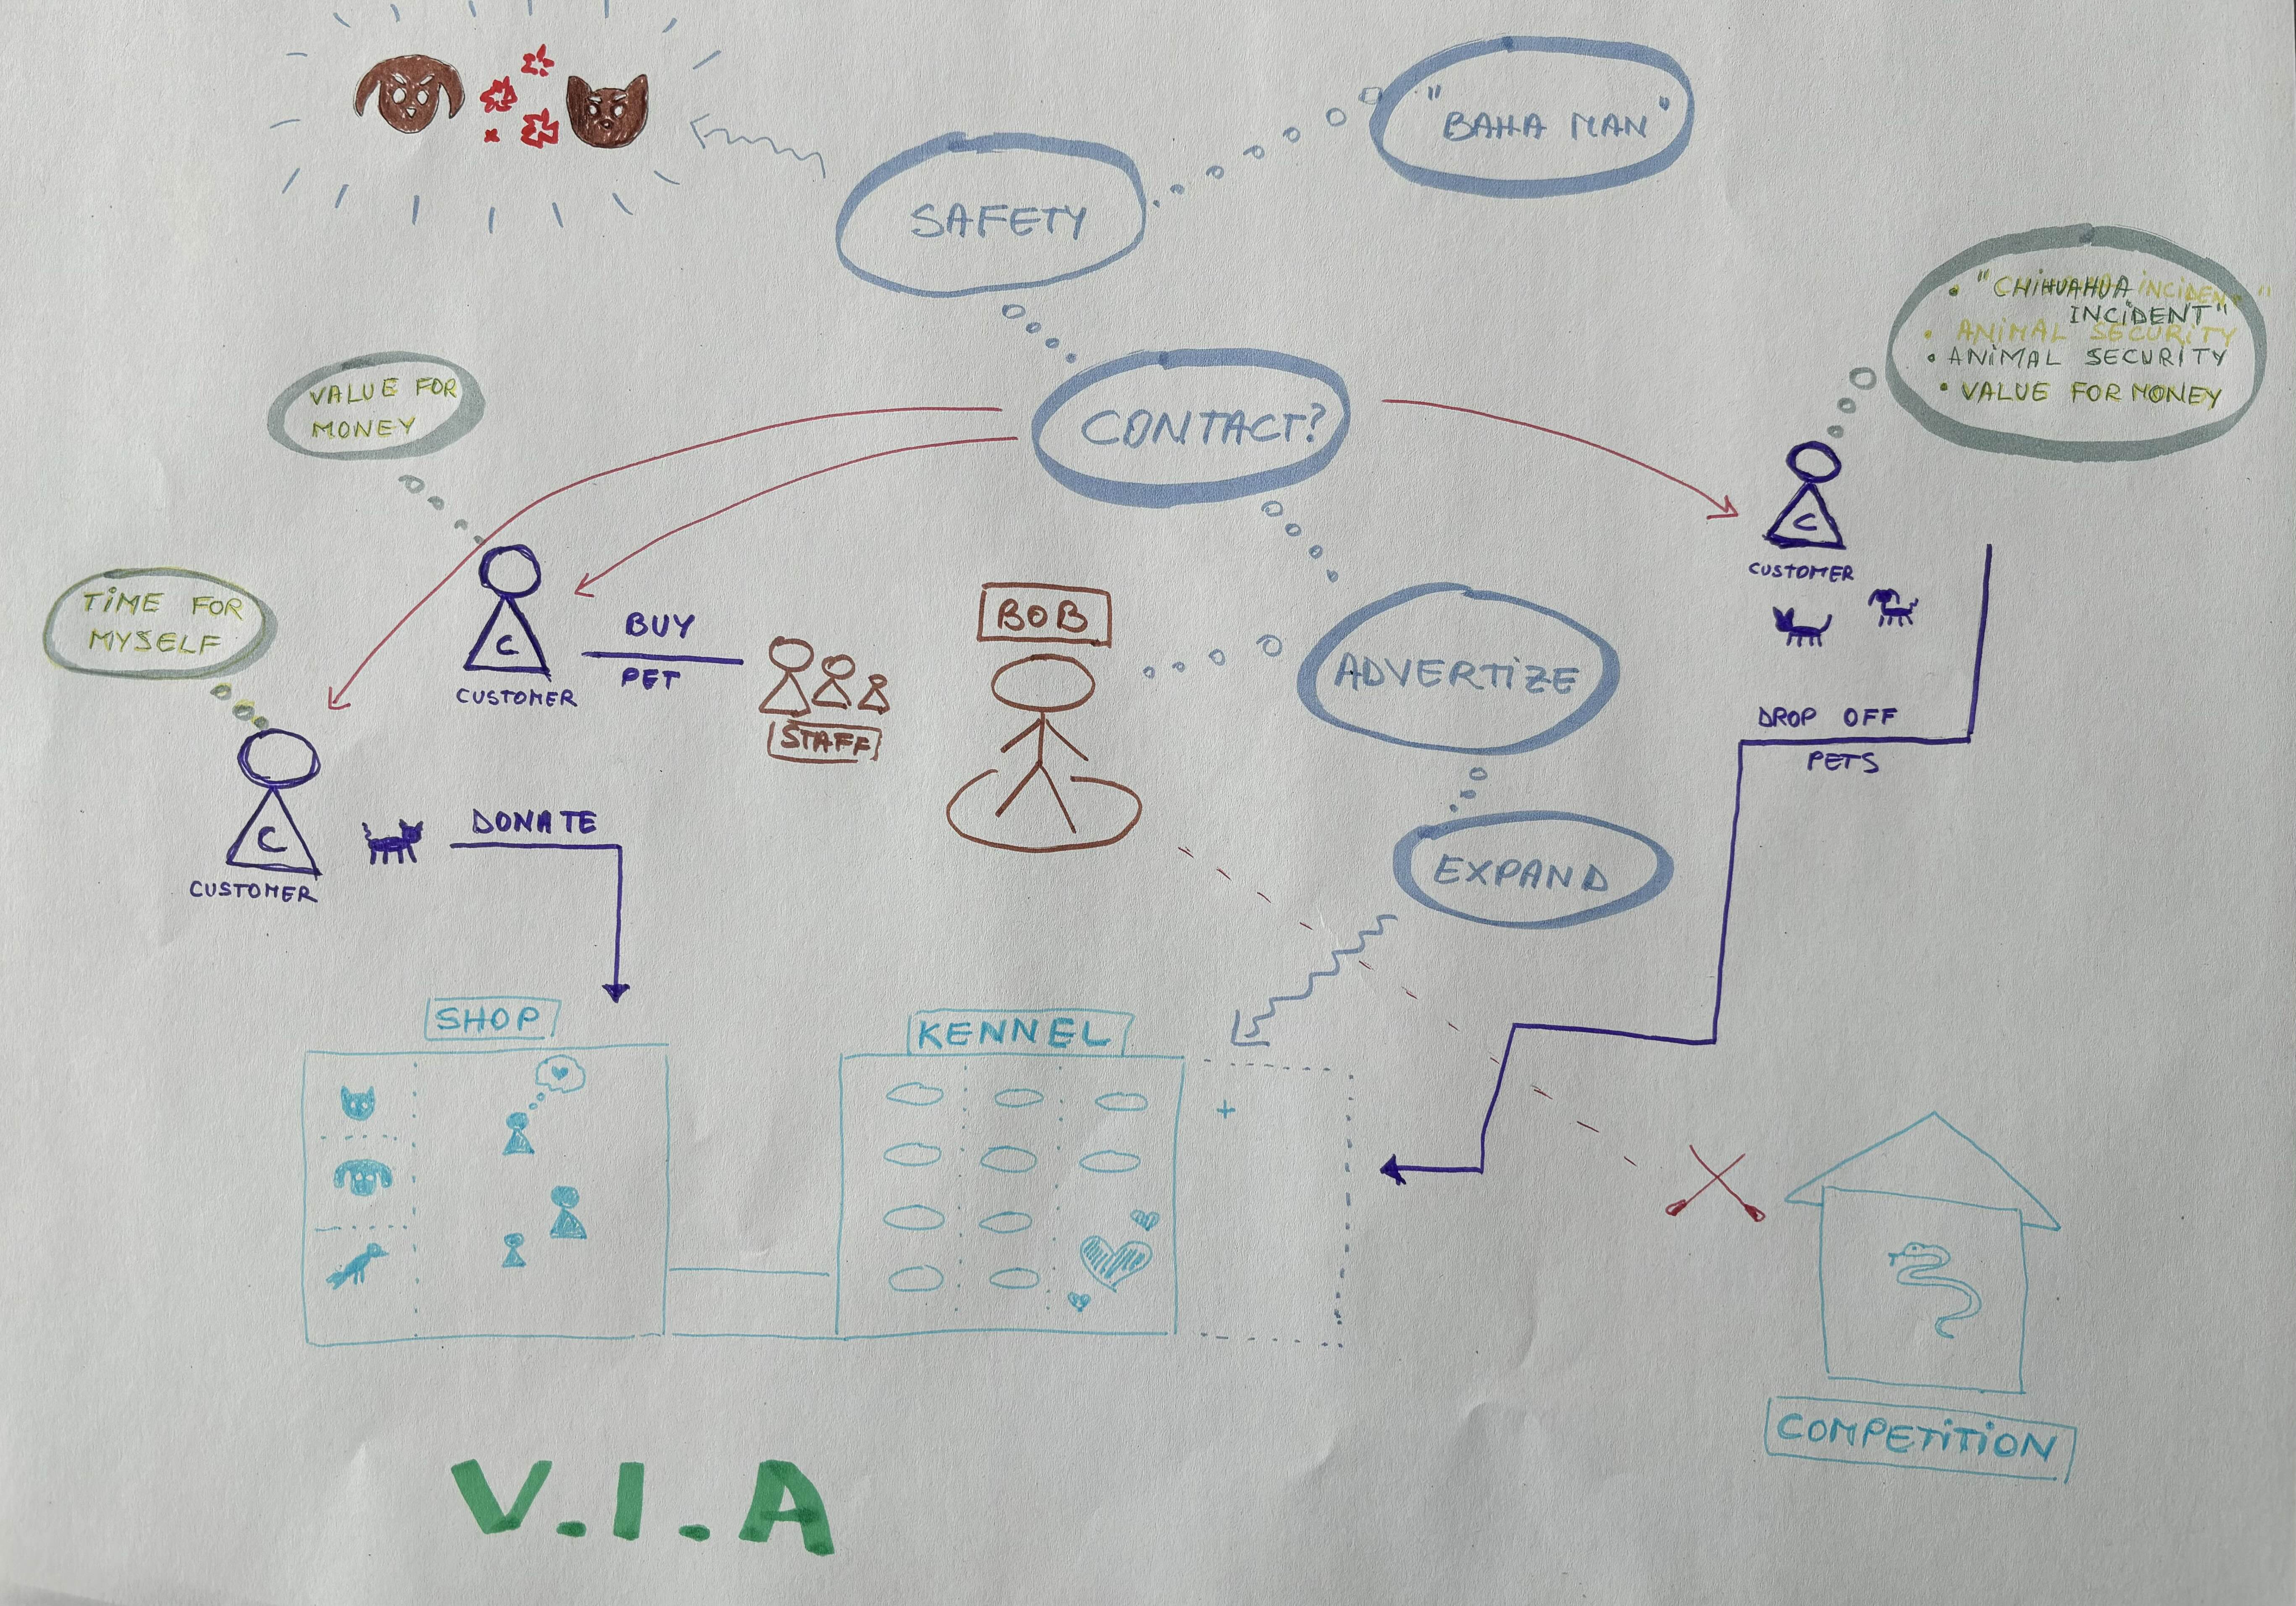 "BAHA MAN"
SAFETY
"CHIHUAHUA INCIDENT"
INCIDENT"
• ANIMAL SECURITY
• ANIMAL SECURITY
• VALUE FOR MONEY
VALUE FOR
MONEY
CONTACT?
C
CUSTOMER
TIME FOR
MYSELF
C
CUSTOMER
BUY
PET
STAFF
BOB
ADVERTIZE
DROP OFF
PETS
C
CUSTOMER
DONATE
EXPAND
SHOP
KENNEL
+
COMPETITION
V.I.A